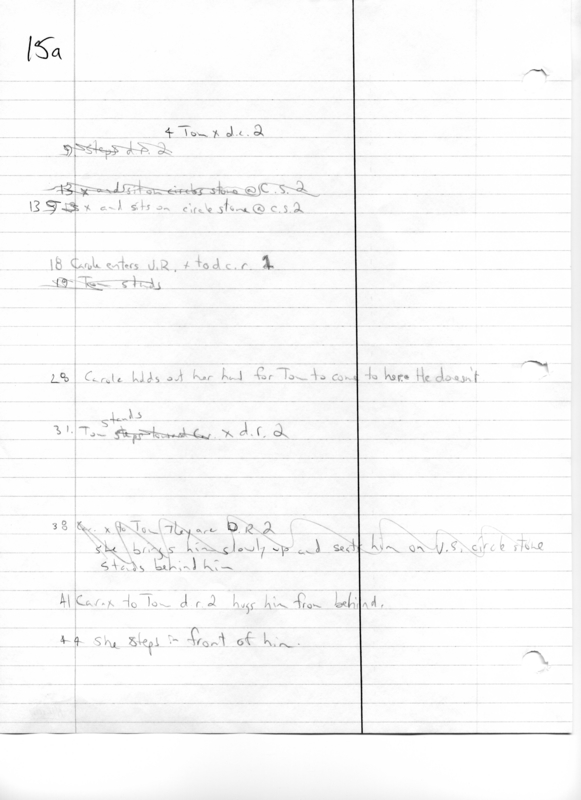 15a
4 Tom x d.c. 2
9, steps d.R. 2
13 x and sit on circles stone @ C.S. 2
13 x and sits on circle stone @ c.s. 2
18 Carole enters U.R. + to d.c.r. 1
19 Tom stands
28 Carole holds out her hand for Tom to come to here. He doesn't
stands
31. Tom steps toward Car. x d.r. 2
38 Car. x to Tom They are D.R. 2
she brings him slowly up and seats him on U.S. circle stone
stands behind him
41 Car. x to Tom d r. 2 hugs him from behind.
44 she steps in front of him.